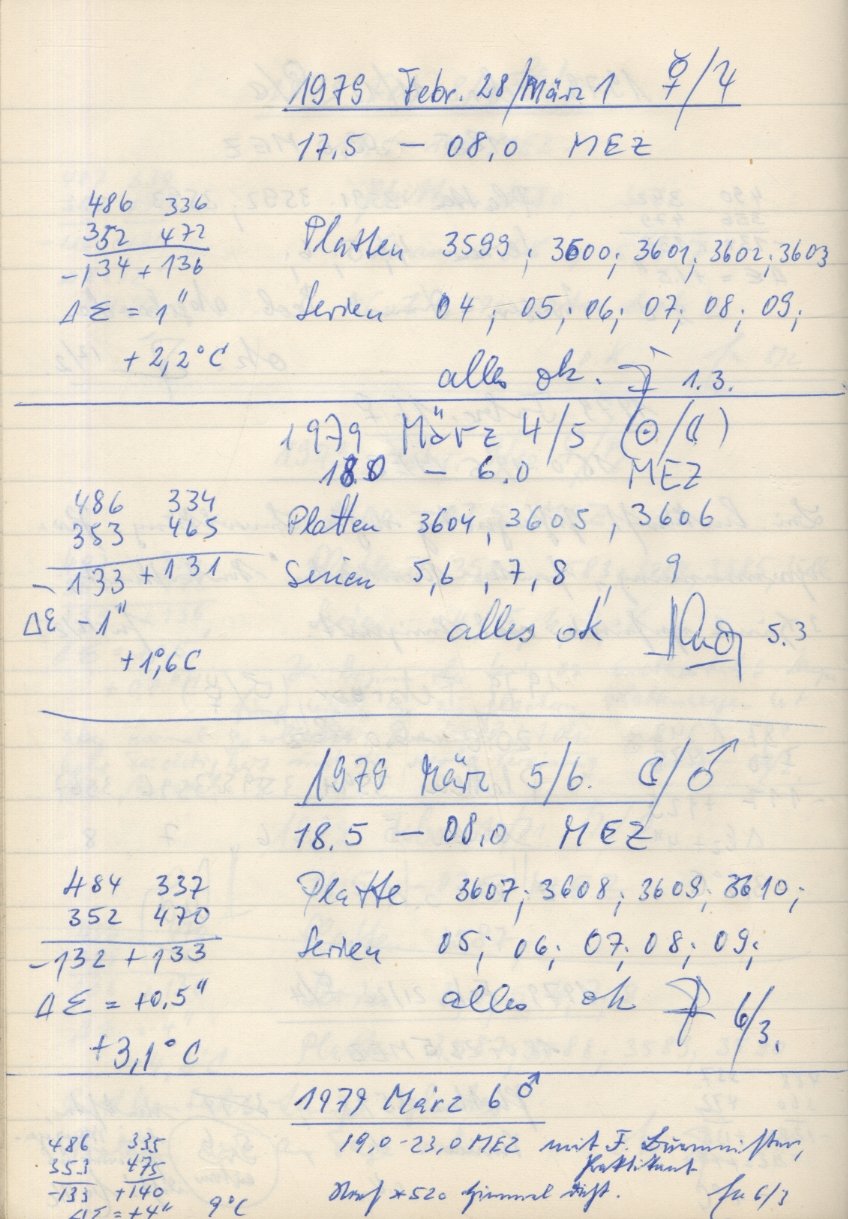 1979 Febr. 28/März 1 ☿/♃
17.5 — 08,0 MEZ
486 336
352 472
-134 + 136
Platten 3599; 3600; 3601; 3602; 3603
ΔΣ = 1"
Serien 04; 05; 06; 07; 08; 09;
+ 2,2°C
alles ok. 1.3.
1979 März 4/5 (☉/☾)
18.0 – 6.0 MEZ
486 334
353 465
Platten 3604, 3605, 3606
-133 + 131
Serien 5,6, 7, 8, 9
ΔΣ -1"
alles ok 5.3
+1°,6C
1979 März 5/6. ☾/♂
18.5 — 08,0 MEZ
484 337
352 470
Platte 3607; 3608; 3609; 3610;
-132 + 133
Serien 05; 06; 07; 08; 09;
ΔΣ = +0.5"
alles ok 6/3.
+3,1°C
1979 März 6 ♂
19,0-23,0 MEZ mit F.
486 335
353 475
Praktikant
-133 +140
*520 Himmel 6/3
ΔΣ = +4" 9°C